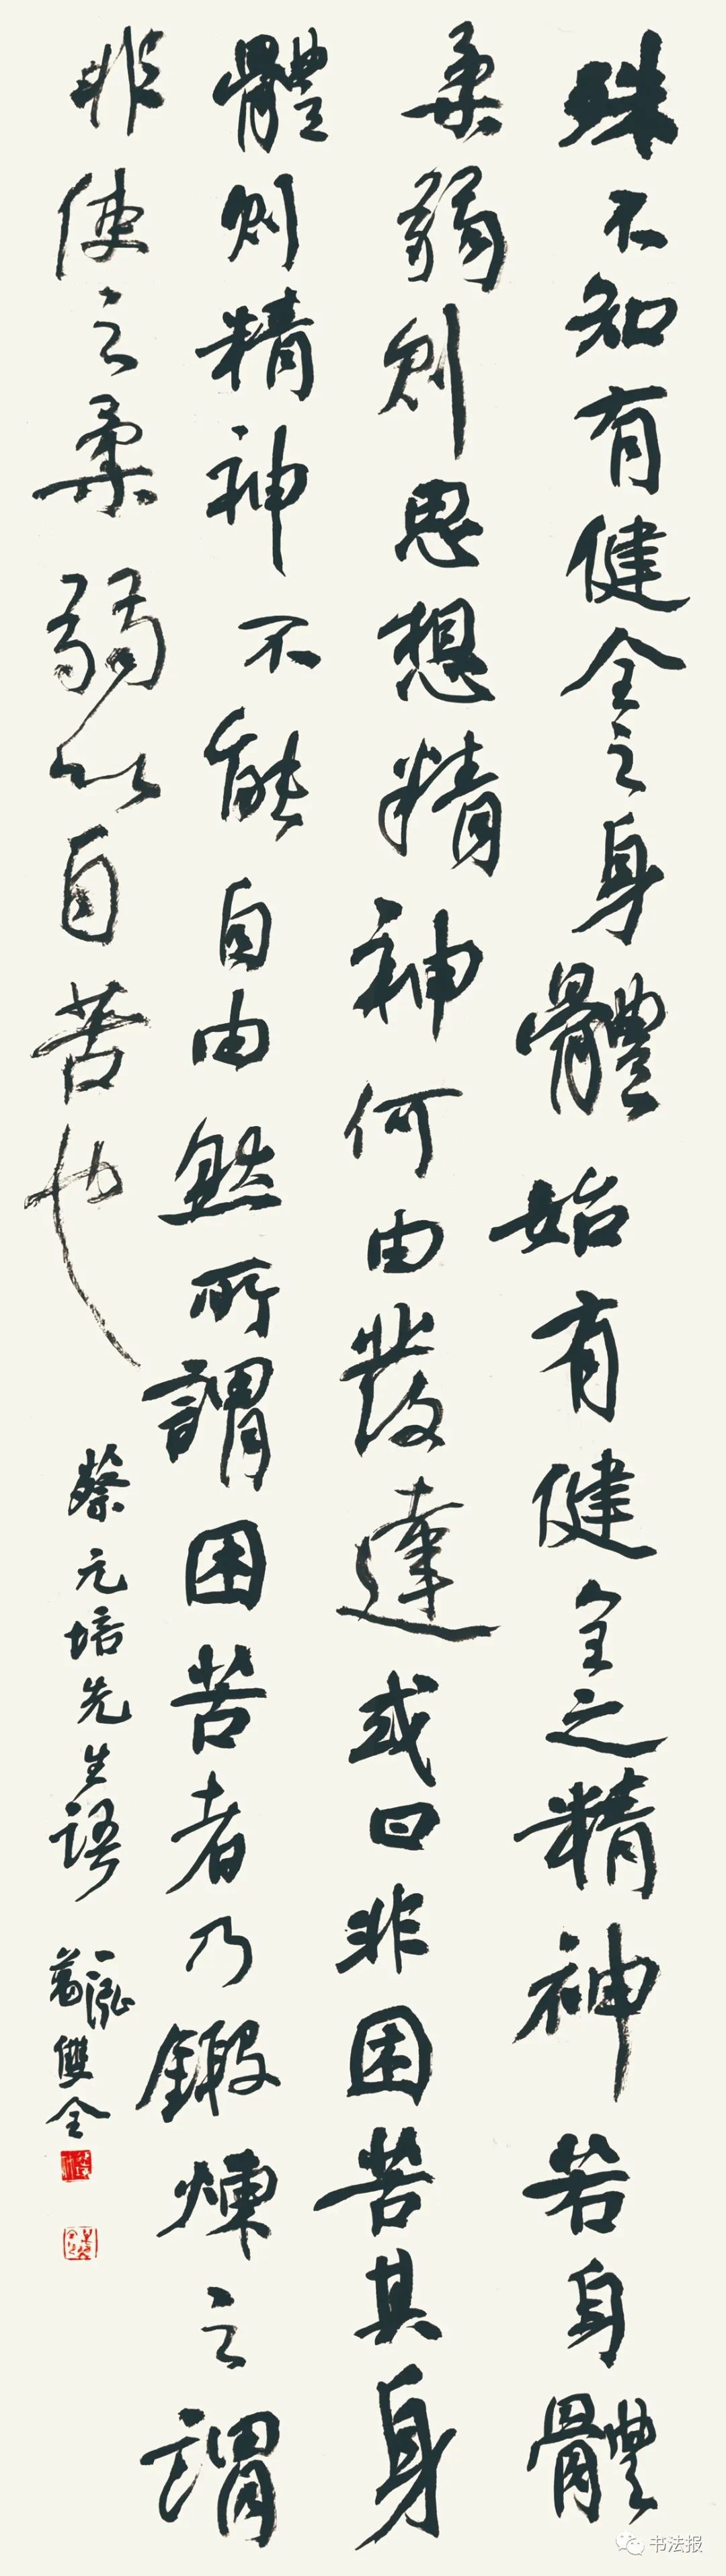 殊不知有健全之身體始有健全之精神若身體
柔弱則思想精神何由發達或曰非困苦其身
體則精神不能自由然所謂困苦者乃鍛煉之謂
非使之柔弱以自苦也
蔡元培先生語
雙全
书法报